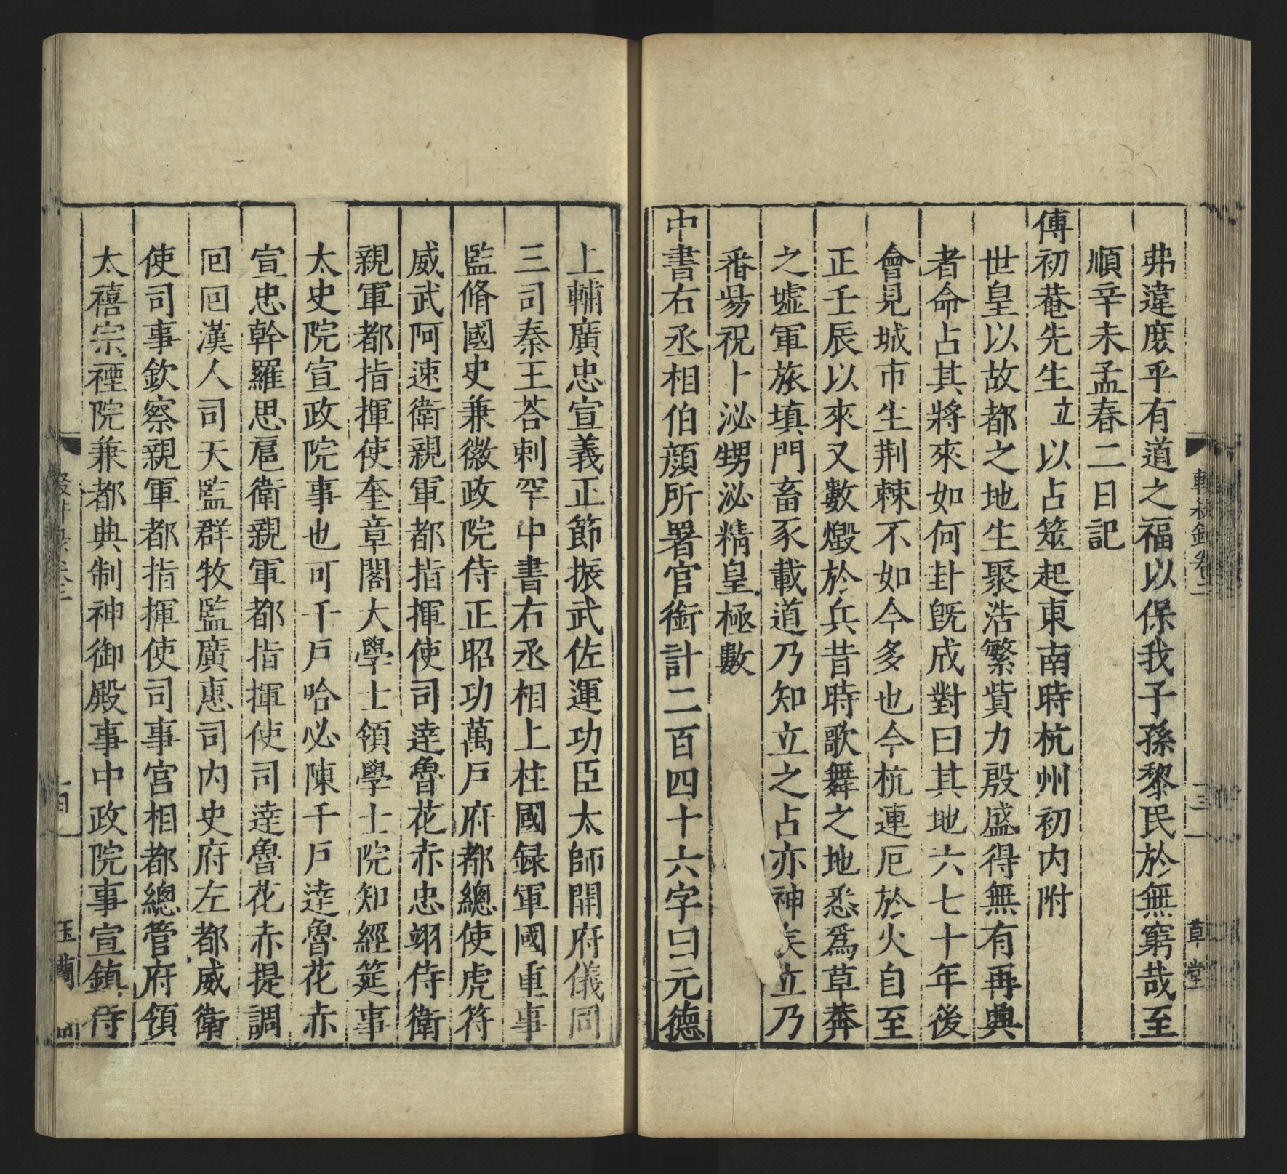 弗違庶乎有道之福以保我子孫黎民於無窮哉至
順辛未孟春二日記
傅初菴先生立以占筮起東南時杭州初内附
世皇以故都之地生聚浩繁貲力殷盛得無有再興
者命占其將來如何卦旣成對曰其地六七十年後
會見城市生荆棘不如今多也今杭連厄於火自至
正壬辰以來又數燬於兵昔時歌舞之地悉爲草莽
之墟軍旅填門畜豕載道乃知立之占亦神矣立乃
番昜祝卜泌甥泌精皇極數
中書右丞相伯顔所署官銜計二百四十六字曰元德
上輔廣忠宣義正節振武佐運功臣太師開府儀同
三司秦王荅剌罕中書右丞相上柱國録軍國重事
監脩國史兼徽政院侍正昭功萬戸府都總使虎符
威武阿速衛親軍都指揮使司逹魯花赤忠翊侍衛
親軍都指揮使奎章閣大學士領學士院知經筵事
太史院宣政院事也可千戸哈必陳千戸逹魯花赤
宣忠幹羅思扈衛親軍都指揮使司逹魯花赤提調
回回漢人司天監群牧監廣惠司内史府左都威衛
使司事欽察親軍都指揮使司事宫相都總管府領
太禧宗禋院兼都典制神御殿事中政院事宣鎮侍
草堂
玉蘭